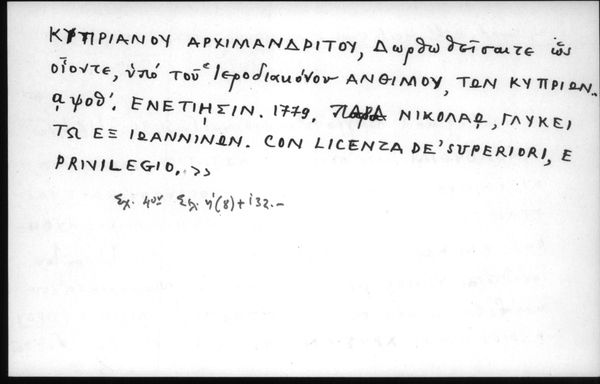 ΚΥΠΡΙΑΝΟΥ ΑΡΧΙΜΑΝΔΡΙΤΟΥ, Διορθωθεῖσαι τε ὡς
οἷόντε, ὑπό τοῦ Ἱεροδιακόνου ΑΝΘΙΜΟΥ, ΤΩΝ ΚΥΠΡΙΩΝ.
αψοθ'. ΕΝΕΤΙῌΣΙΝ. 1779. ΠΑΡΑ ΝΙΚΟΛΑῼ, ΓΛΥΚΕΙ
ΤΩ ΕΞ ΙΩΑΝΝΙΝΩΝ. CON LICENZA DE' SUPERIORI, E
PRIVILEGIO. >>
Σχ. 4ον Σελ. η'(8) + 132.-